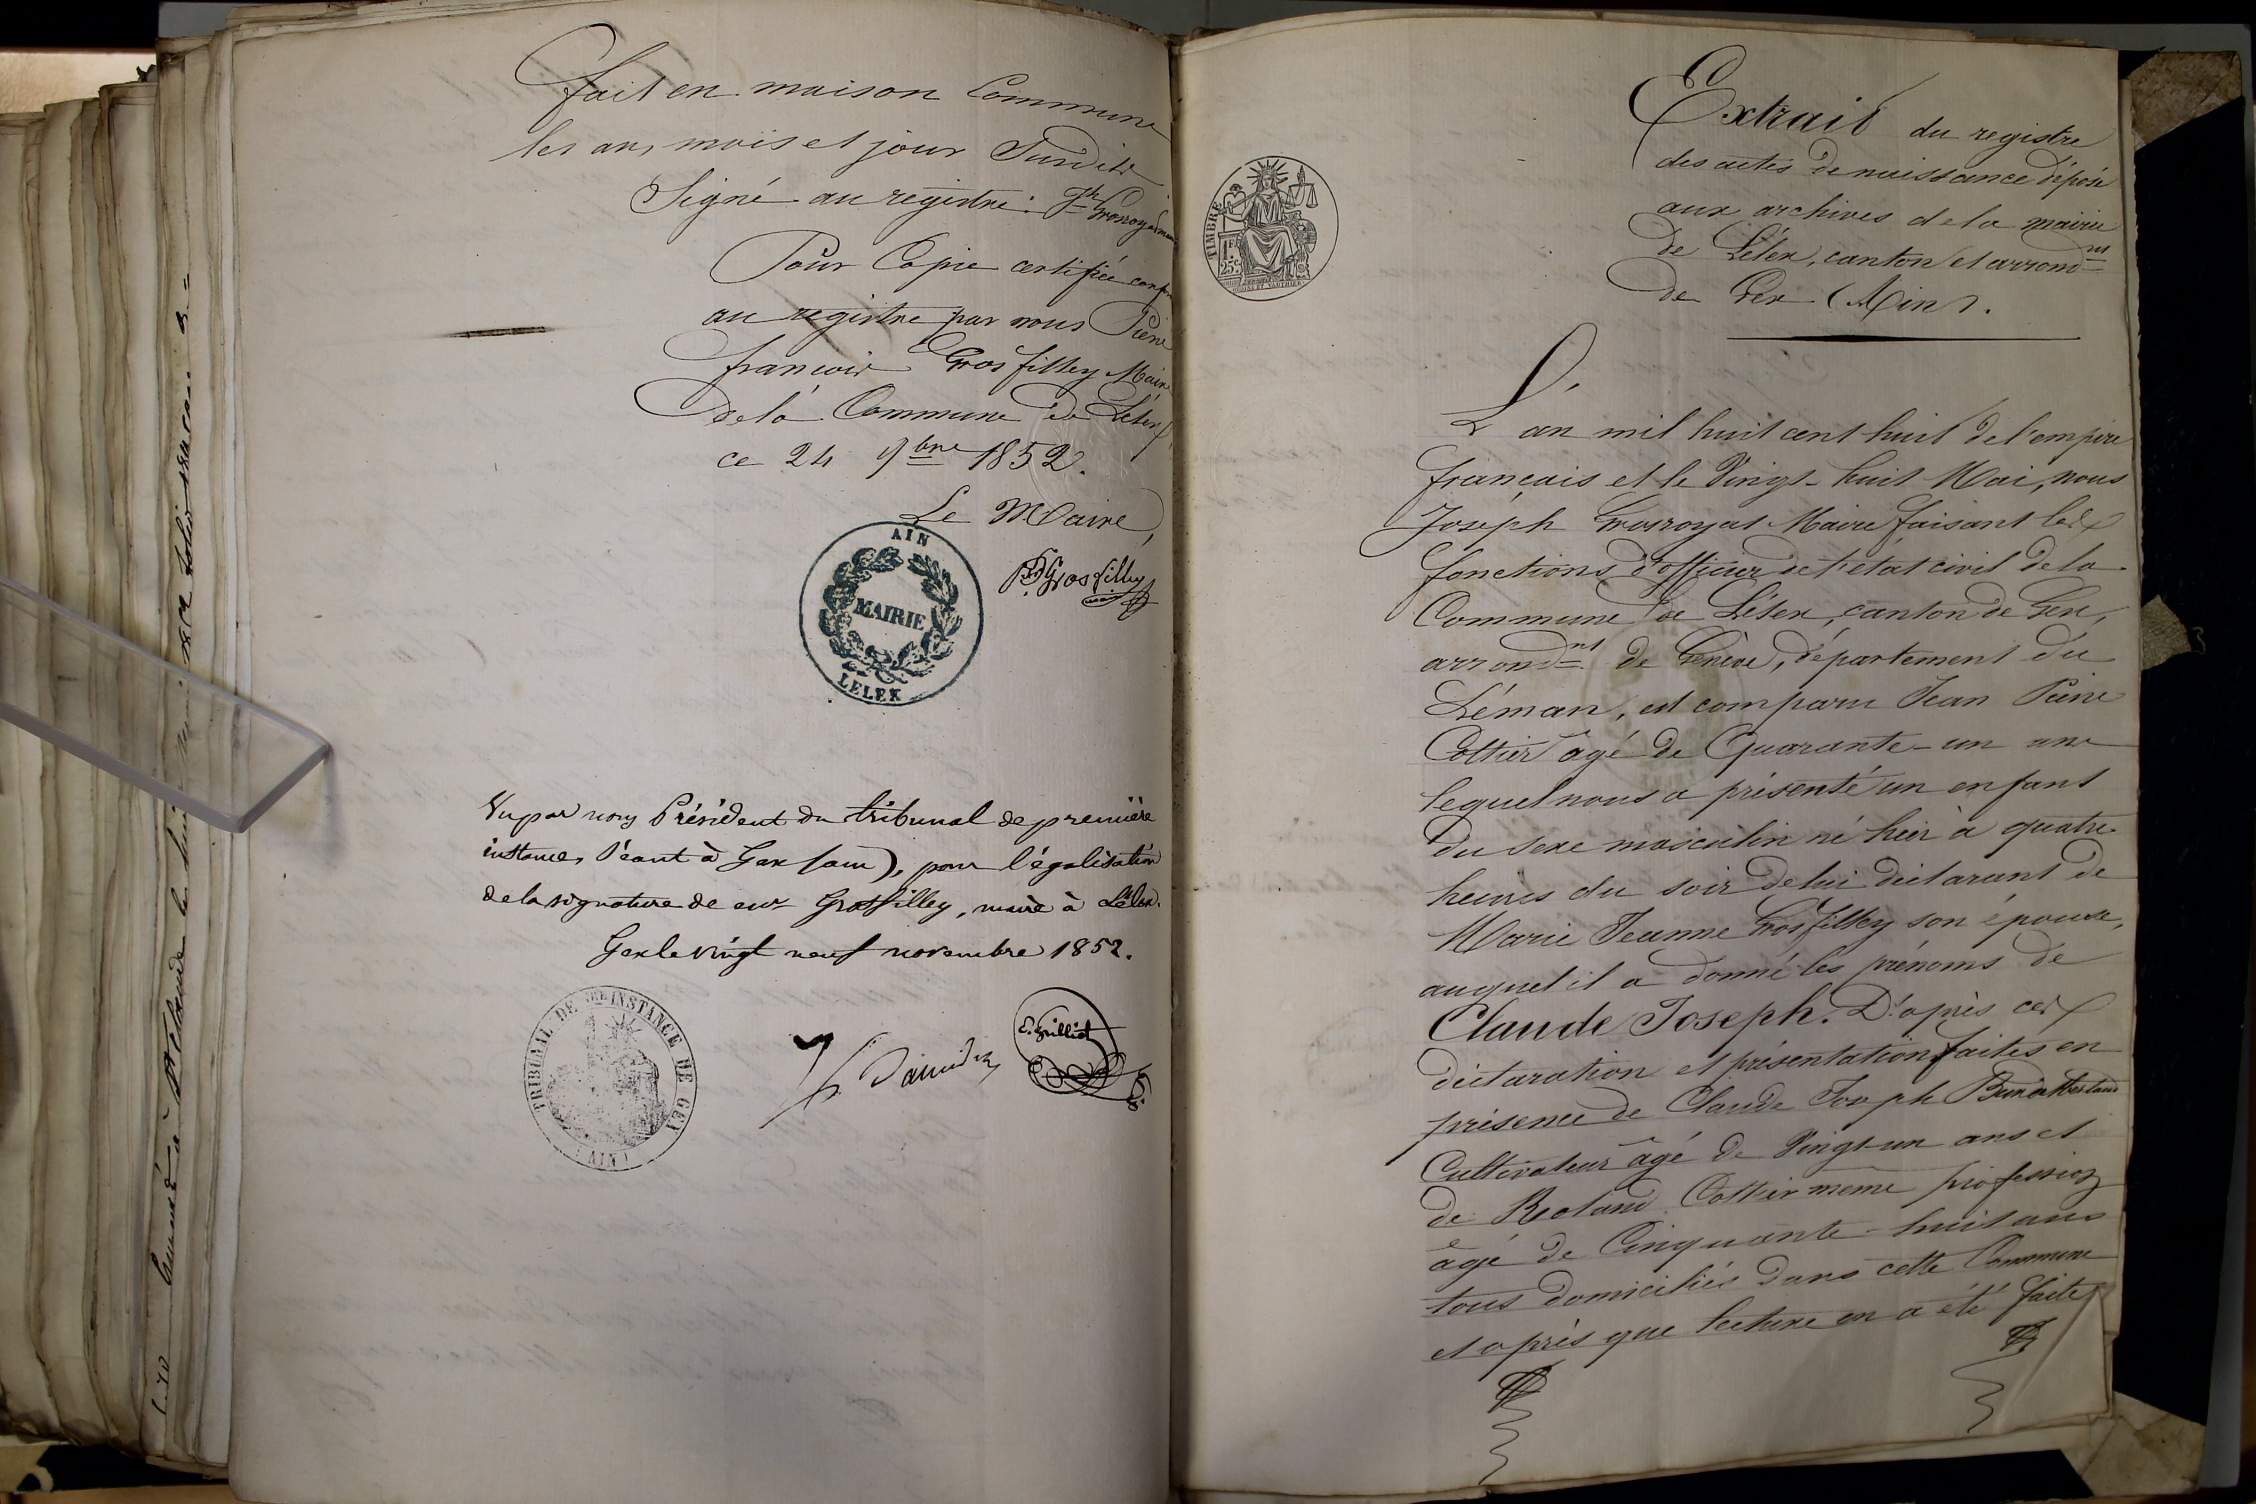 fait en maison Commune
les an, mois et jour Susdits
Signé au registre: Jh Grosroyat maire
Pour Copie certifiée conforme
au registre par nous Pierre
françois Grosfilley Maire
de la Commune de Lélex
ce 24 9bre 1852.
Le Maire,
Grosfilley
AIN
MAIRIE
LELEX
Vu par nous Président du tribunal de première
instance, Séant à Gex (ain), pour légalisation
de la signature de mr Grosfilley, maire à Lélex.
Gex le vingt neuf novembre 1852.
TRIBUNAL DE 1ERE INSTANCE DE GEX
(AIN)
E. Grilliet
TIMBRE
1 FR
25 C
Extrait du registre
des actes de naissance déposé
aux archives de la mairie
de Lélex, canton et arrondnt
de Gex (Ain).
L'an mil huit cent huit de l'empire
français et le Vingt-huit Mai, nous
Joseph Grosroyat Maire faisant les
fonctions d'officier de l'état civil de la
Commune de Lélex, canton de Gex,
arrondnt de Genève, département du
Léman, est comparu Jean Pierre
Cottier âgé de Quarante-un ans
lequel nous a présenté un enfant
du sexe masculin né hier à quatre
heures du soir de lui déclarant de
Marie Jeanne Grosfilley son épouse,
auquel il a donné les prénoms de
Claude Joseph. D'après ces
déclaration et présentation faites en
présence de Claude Joseph
Cultivateur âgé de Vingt-un ans et
de Roland Cottier même profession
âgé de Cinquante-huit ans
tous domiciliés dans cette Commune
et après que lecture en a été faite